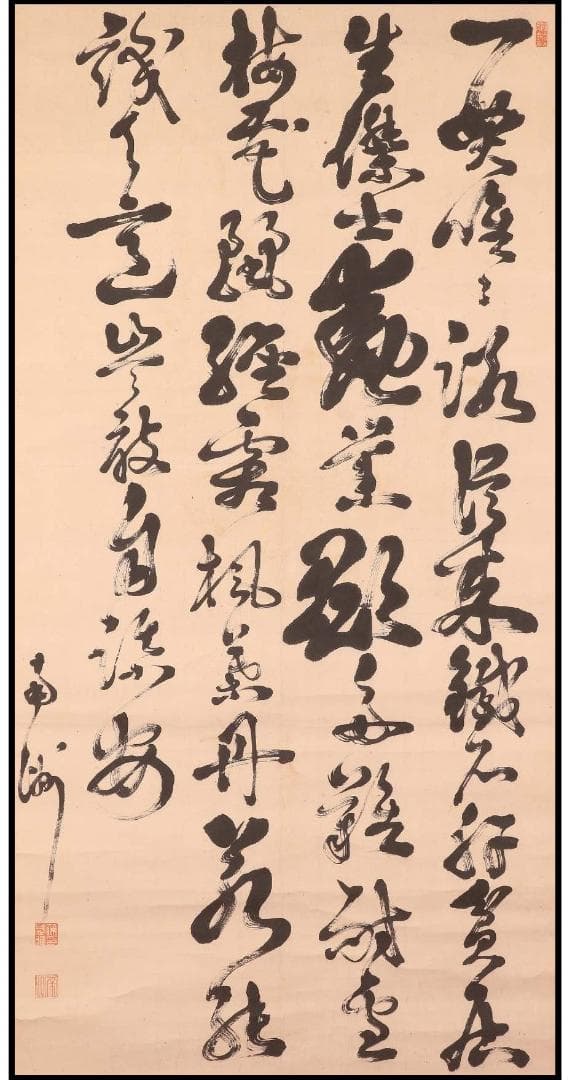 一貫唯〻諾從来鐵石肝貧居
生傑士勲業顕多難耐雪
梅花麗經霜楓葉丹若能
識天意豈敢自謀安
南洲